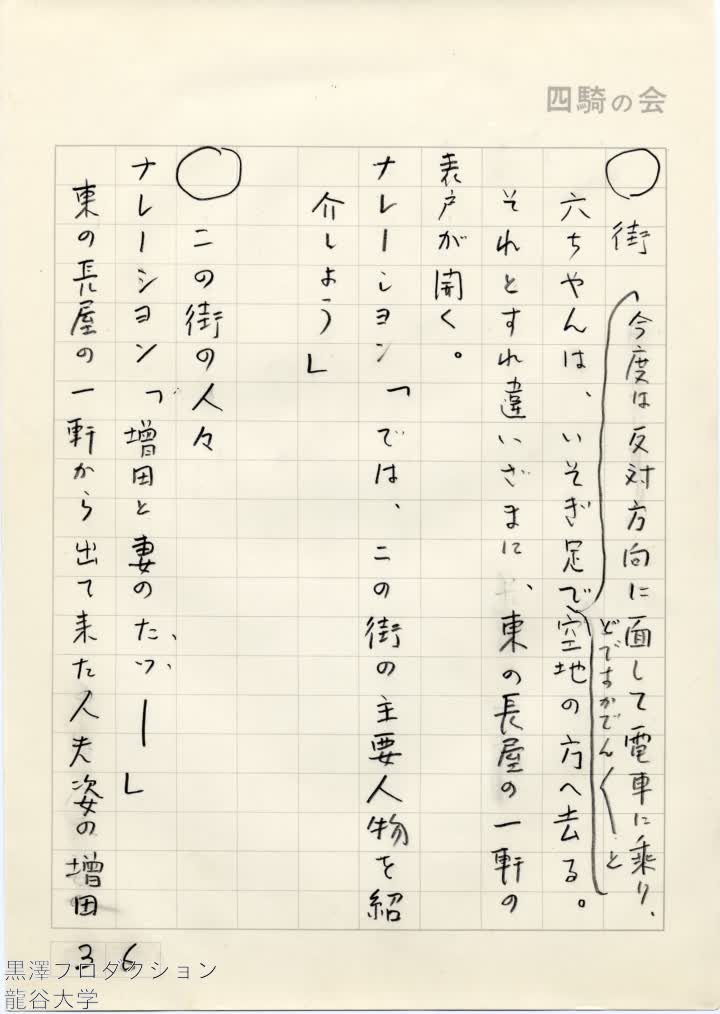 四騎の会
○ 街
今度は反対方向に面して電車に乗り、
どですかでん〱と
六ちゃんは、いそぎ足で空地の方へ去る。
それとすれ違いざまに、東の長屋の一軒の
表戸が開く。
ナレーション「では、この街の主要人物を紹
介しよう」
○ この街の人々
ナレーション「増田と妻のたつ、――」
東の長屋の一軒から出て来た人夫姿の増田
36
黒澤プロダクション
龍谷大学